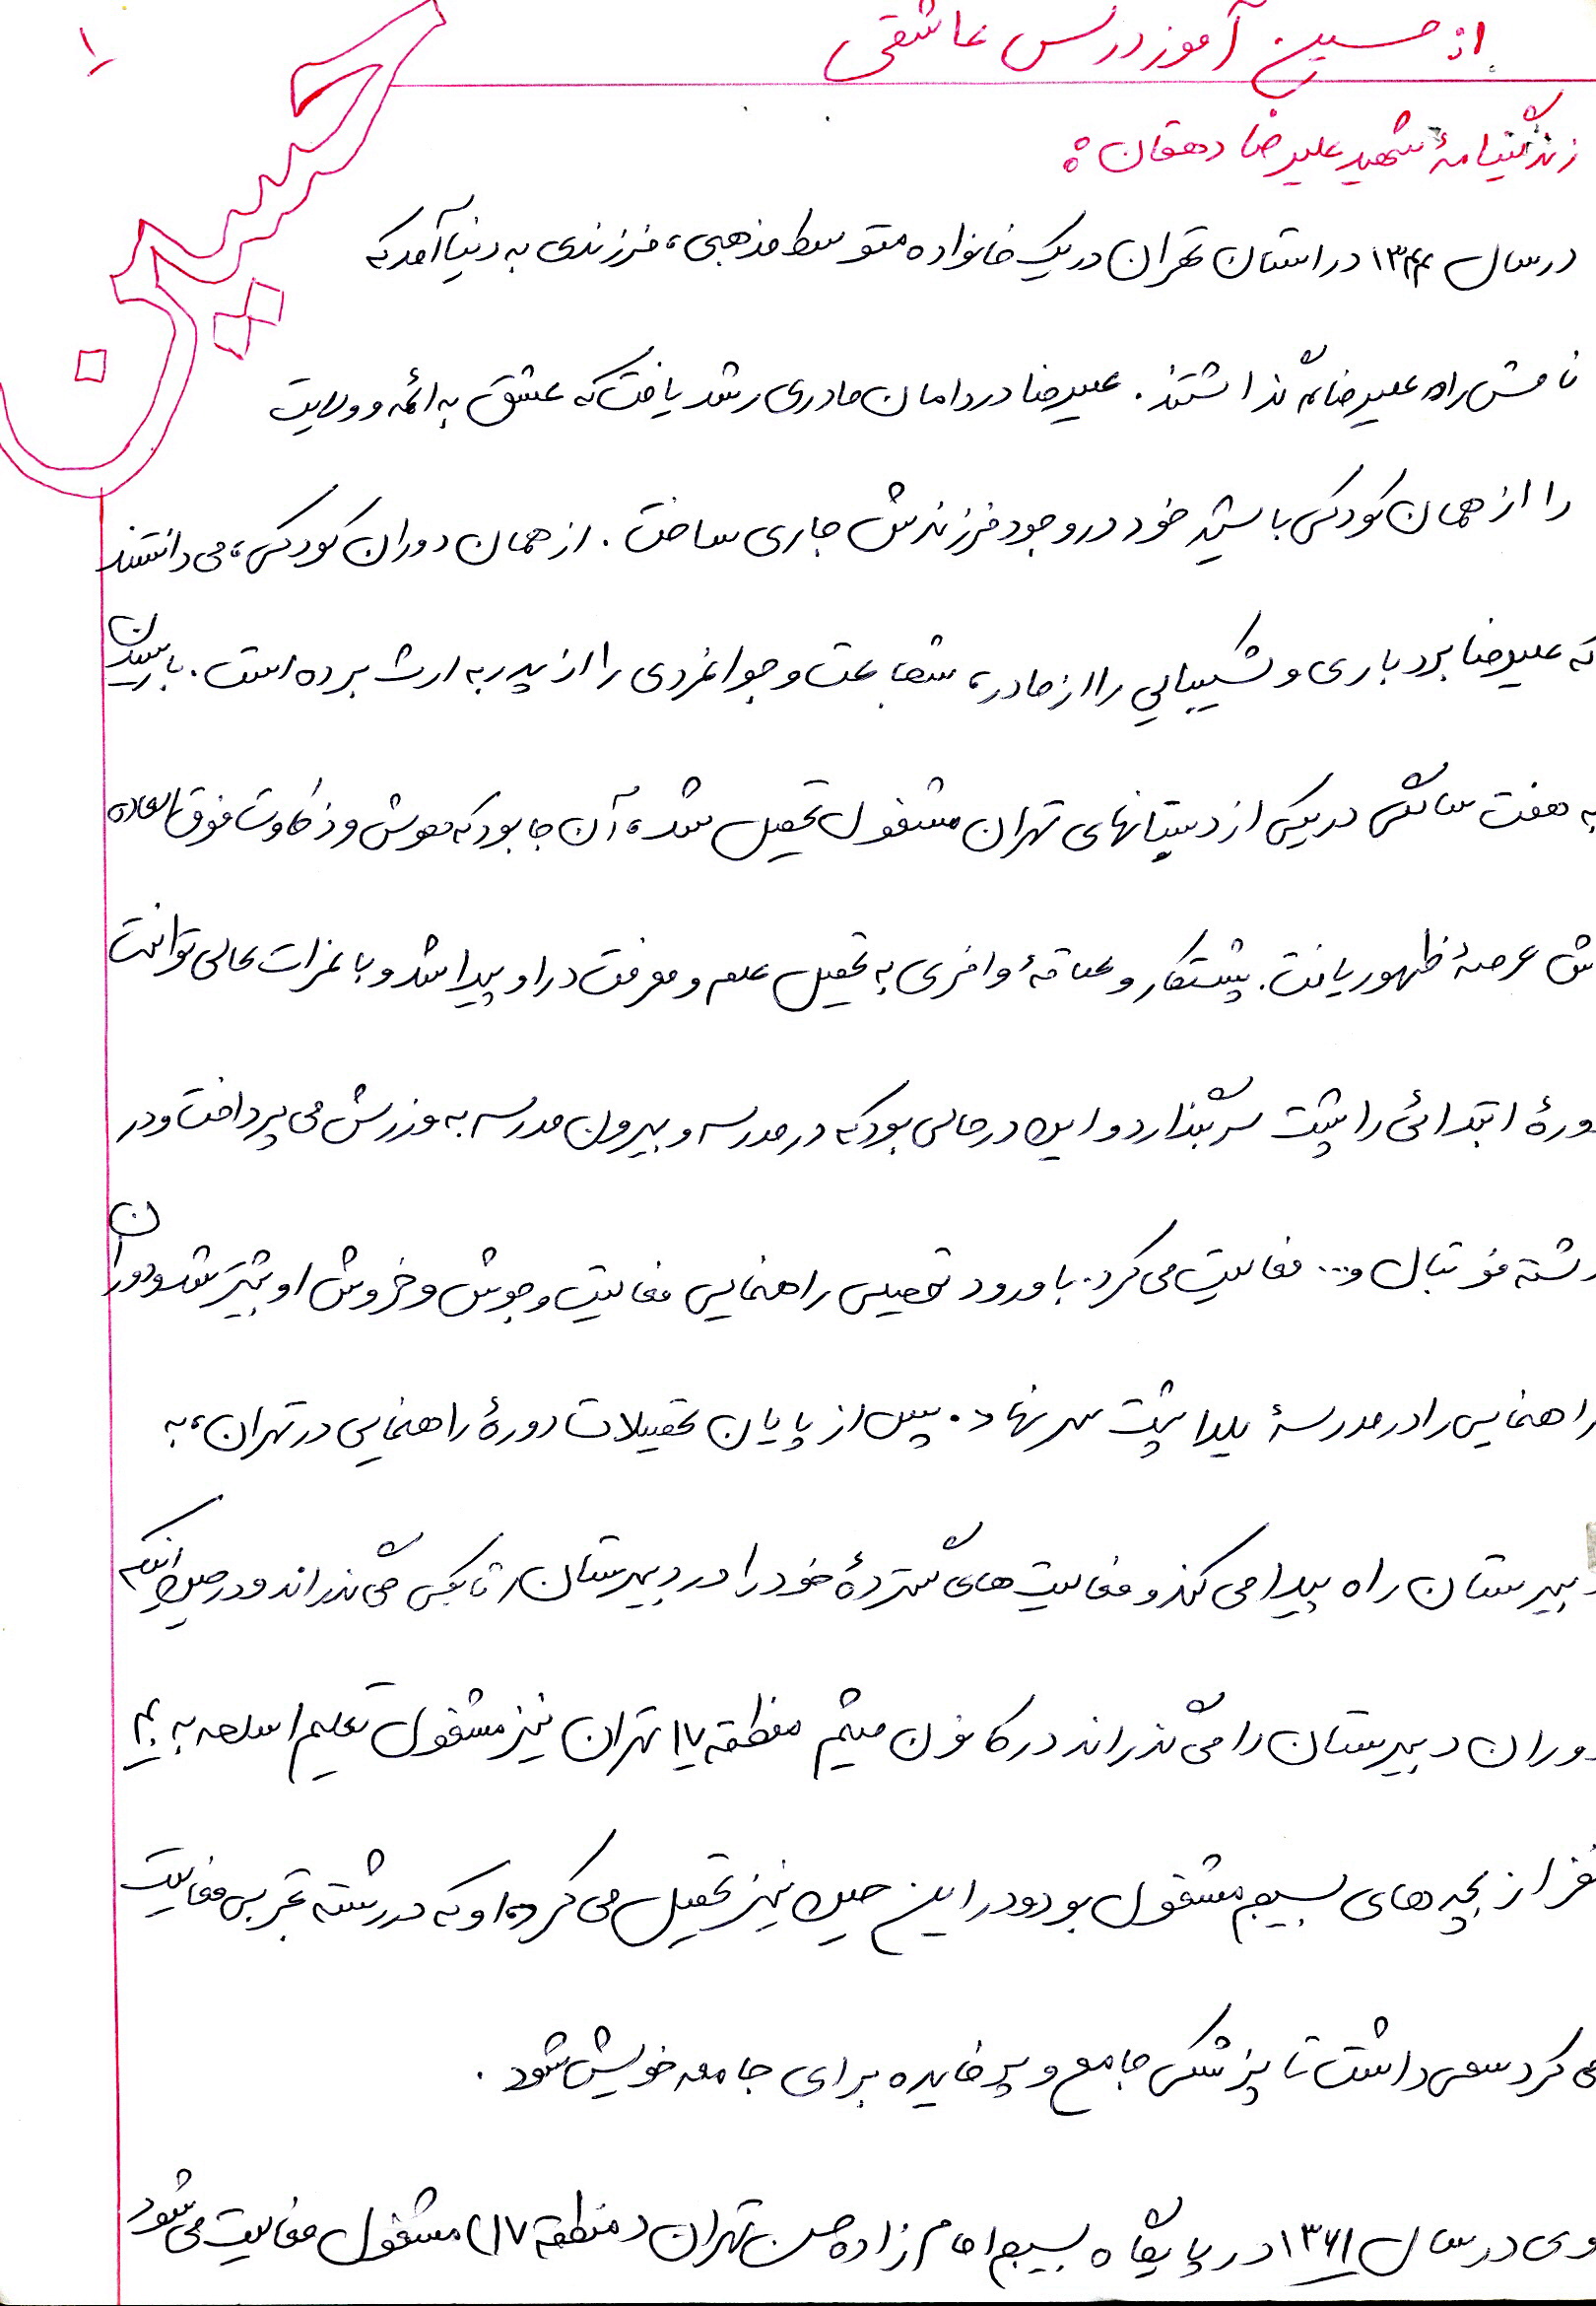 از حسین آموز درس عاشقی
۱
حسین
زندگینامهٔ شهید علیرضا دهقان :
در سال ۱۳۴۴ در استان تهران در یک خانواده متوسط مذهبی، فرزندی به دنیا آمد که
نامش را علیرضا گذاشتند. علیرضا در دامان مادری رشد یافت که عشق به ائمه و ولایت
را از همان کودکی با شیر خود در وجود فرزندش جاری ساخت. از همان دوران کودکی، می دانستند
که علیرضا بردباری و شکیبایی را از مادر، شجاعت و جوانمردی را از پدر به ارث برده است. با رسیدن
به هفت سالگی در یکی از دبستانهای تهران مشغول تحصیل شد، آن جا بود که هوش و ذکاوت فوق العاده
اش عرصهٔ ظهور یافت. پشتکار و علاقهٔ وافری به تحصیل علم و معرفت در او پیدا شد و با نمرات عالی توانست
دورهٔ ابتدائی را پشت سر بگذارد و این در حالی بود که در مدرسه و بیرون مدرسه به ورزش می پرداخت و در
رشته فوتبال و... فعالیت می کرد. با ورود تحصیلی راهنمایی فعالیت و جوش و خروش او بیشتر شد و دوران
راهنمایی را در مدرسهٔ یلدا پشت سر نهاد. پس از پایان تحصیلات دورهٔ راهنمایی در تهران، به
دبیرستان راه پیدا می کند و فعالیت های گستردهٔ خود را در دبیرستان می گذراند و در حین اینکه
دوران دبیرستان را می گذراند در کانون میثم منطقه ۱۷ تهران نیز مشغول تعلیم اسلحه به ۴۰
نفر از بچه های بسیج مشغول بود و در این حین نیز تحصیل می کرد، او که در رشته تجربی فعالیت
می کرد سعی داشت تا پزشکی جامع و پر فایده برای جامعه خویش شود.
وی در سال ۱۳۶۱ در پایگاه بسیج امام زاده حسن تهران (منطقه ۱۷) مشغول فعالیت می شود